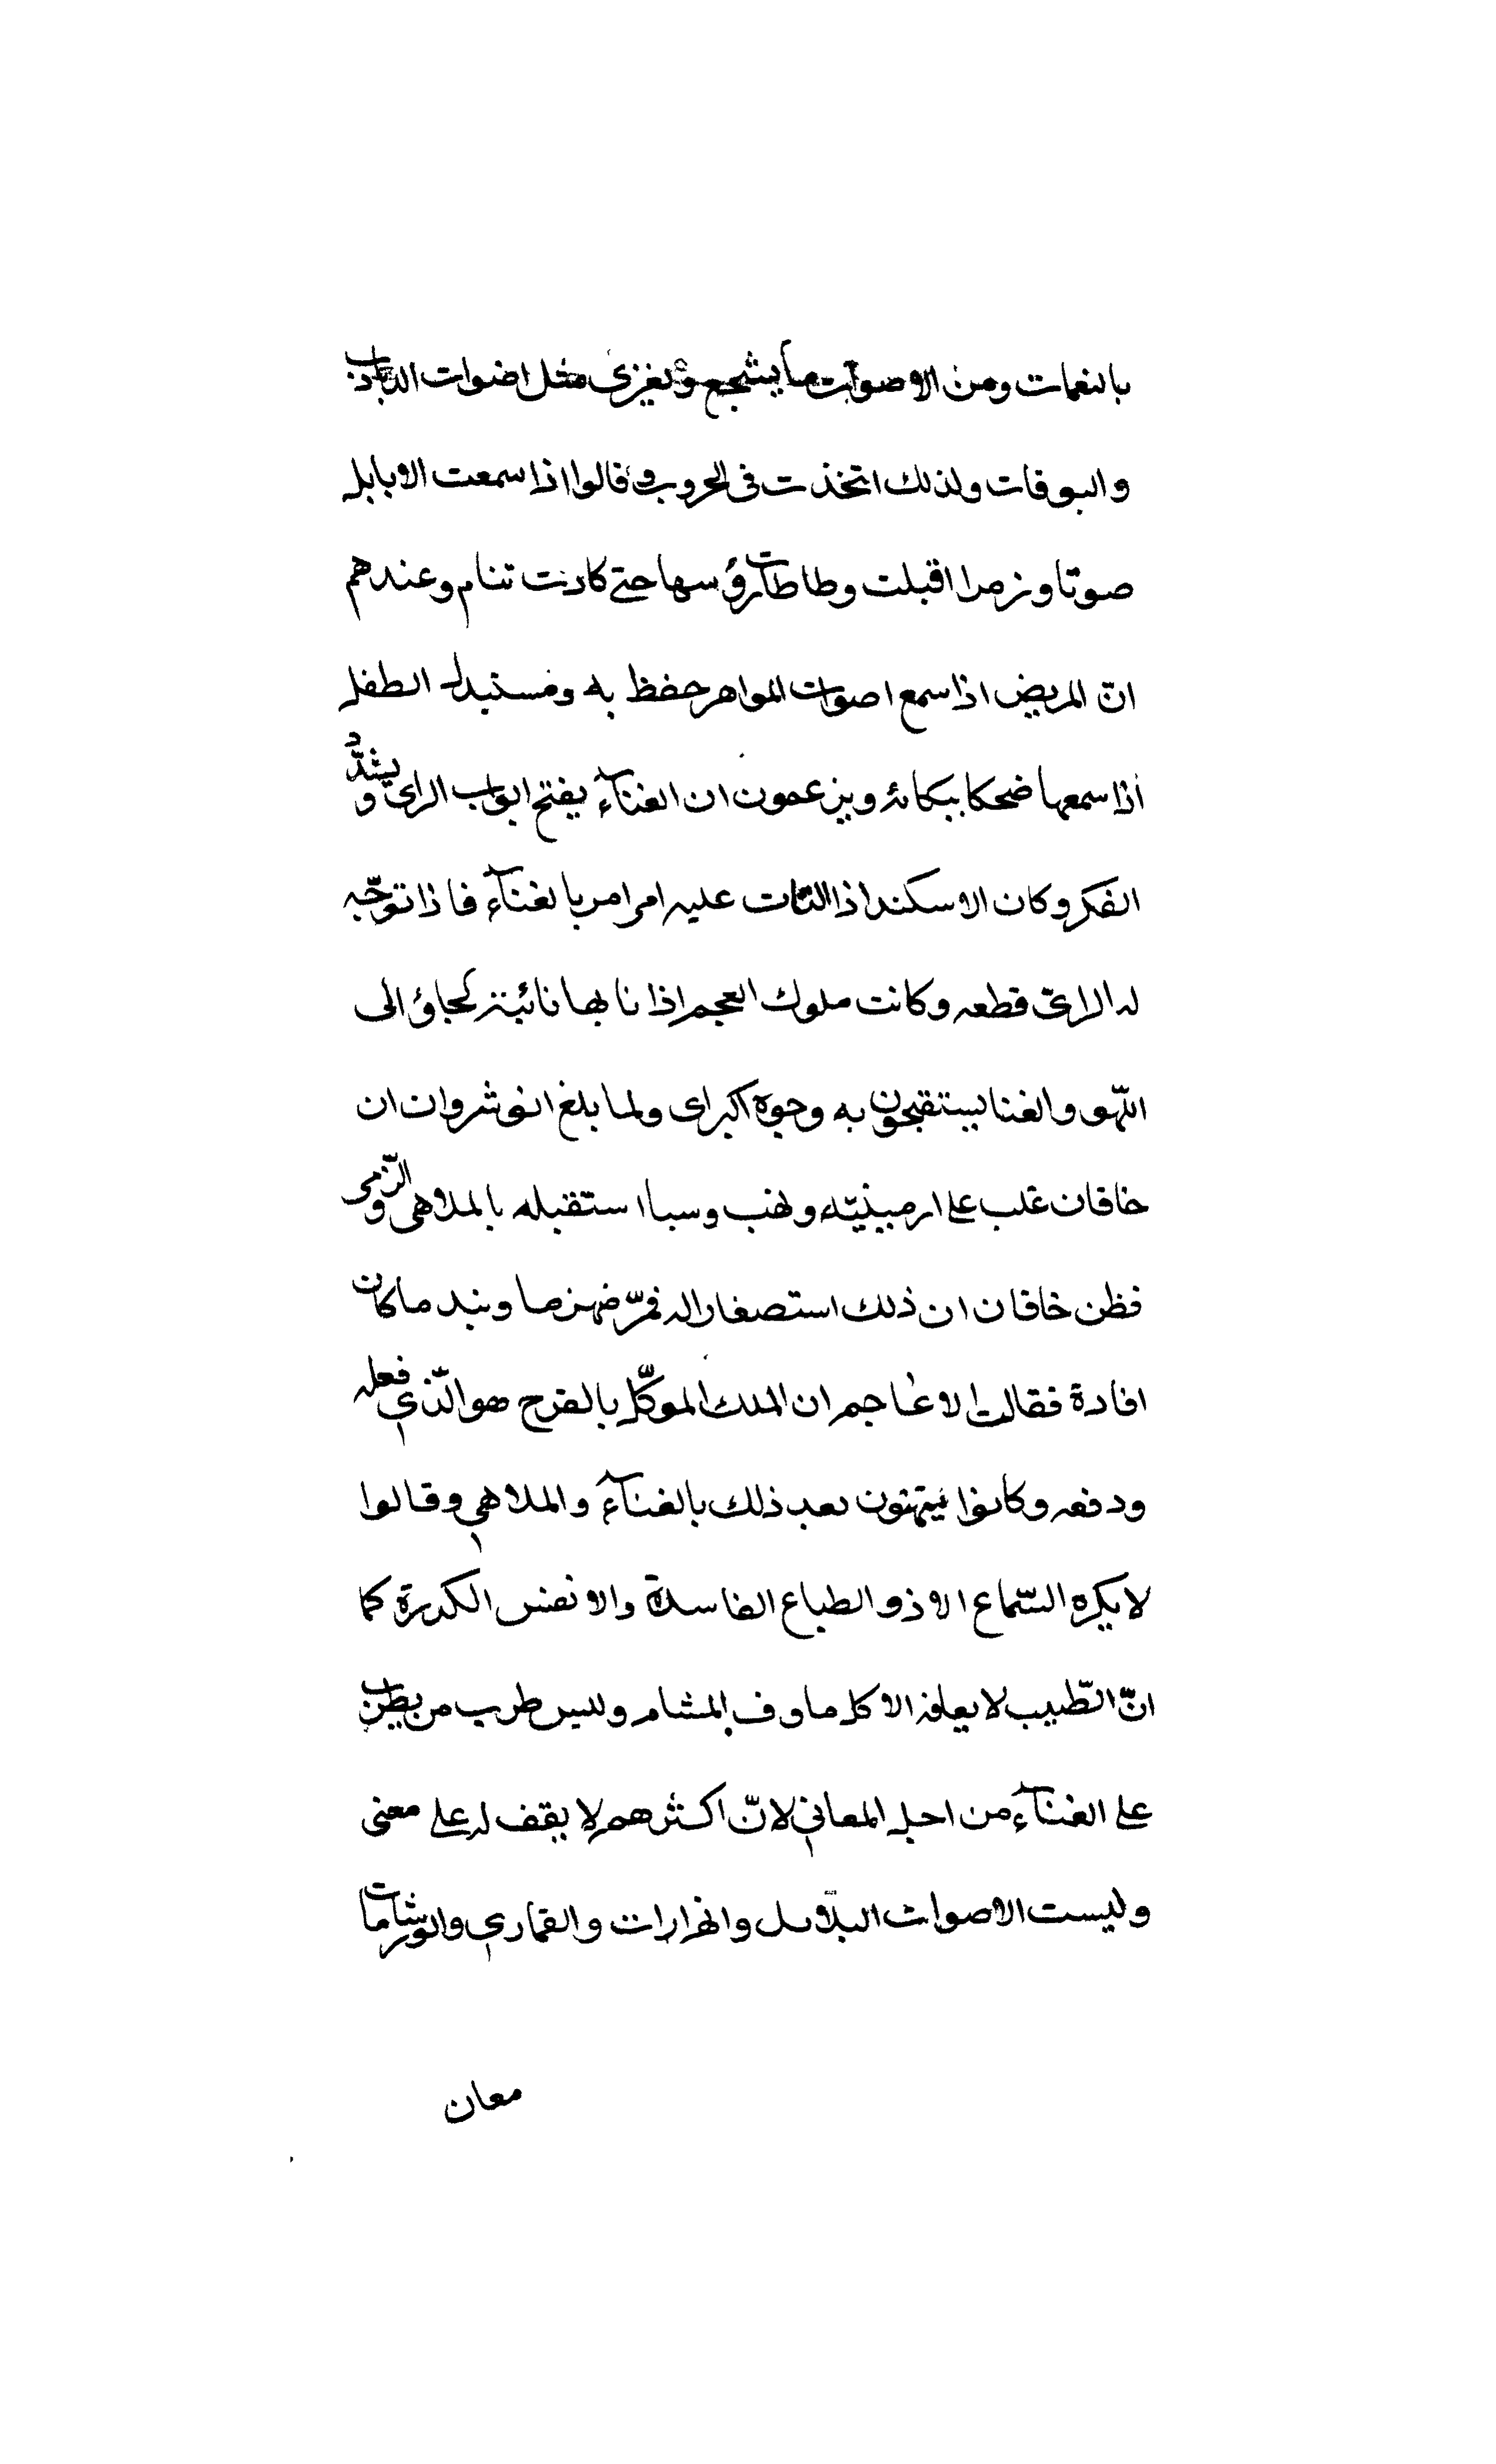 بالنغمات ومن الاصوات ما يشجع ويغزى مثل اضوات الدبادب
والبوقات ولذلك اتخذت فى الحروب وقالوا اذا سمعت الابابل
صوتا وزمرا اقبلت وطاطات رؤسها حتى كادت تنام وعندهم
انّ المريض اذا سمع اصوات المواهر حفظ به ومستبدل الطفل
اذا سمعها ضحكا ببكائه ويزعمون ان الغنآء يفتح ابواب الراى ويشدّد
الفكر وكان الاسكند اذا التاث عليه امرا مر بالغنآء فاذا توجّه
له الراىّ قطعه وكانت ملوك العجم اذا نابها نائبة لجاؤ الى
اللّهو والغنا يستقبحون به وجوه اكبراى ولما بلغ انوشروان ان
خاقان غلب على ارمينيّة ونهب وسبا استقبله بالملاهى والزّمر
فظن خاقان ان ذلك استصغارا له ففرّ منهزما ونبد ما كان
افادة فقالت الاعاجم ان الملك الموكّل بالفرح هو الّذي فعله
ودفعه وكانوا يتيمّنون بعد ذلك بالغنآء والملاهي وقالوا
لا يكره السّماع الا ذو الطباع الفاسدة والانفس الكدرة كما
انّ الطّيب لا يعافه الا كل ماوف المشام وليس طرب من يطرب
على الغنآء من اجل المعاني لانّ اكثرهم لا يقف له على معنى
وليست الاصوات البلابل والهزارات والقماري والورشامات
معان